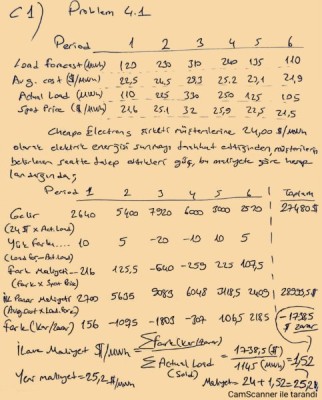 C1) Problem 4.1
Period 1 2 3 4 5 6
Load forecast (MWh) 120 230 310 240 135 110
Avg. cost ($/MWh) 22,5 24,5 29,3 25,2 23,1 21,9
Actual Load (MWh) 110 225 330 250 125 105
Spot Price ($/MWh) 21,6 25,1 32 25,9 22,5 21,5
Cheapo Electrons şirketi müşterilerine 24,00 $/MWh
olarak elektrik enerjisi sunmayı
belirlenen saatte talep ettikleri güç, bu maliyete göre hesap
landığında;
Period 1 2 3 4 5 6 Toplam
Gelir 2640 5400 7920 6000 3000 2520 27480$
(24$ x Act.Load)
Yük farkı.... 10 5 -20 -10 10 5
(Load for.-Act.Load)
fark Maliyet... 216 125,5 -640 -259 225 107,5
(Fark x Spot Price)
Maliyeti 2700 5635 9083 6048 3118,5 2409
(Avg.Cost x Load.fore)
fark (Kar/Zarar) 156 -109,5 -1803 -307 106,5 218,5 -1738,5 $ zarar
İlave Maliyet $/MWh = Σ fark (Kar/Zarar) / Σ Actual Load (Sold) = 1738,5 ($) / 1145 (MWh) = 1,52
Yeni maliyet = 25,52 $/MWh Maliyet = 24 + 1,52 =
CamScanner ile tarandı